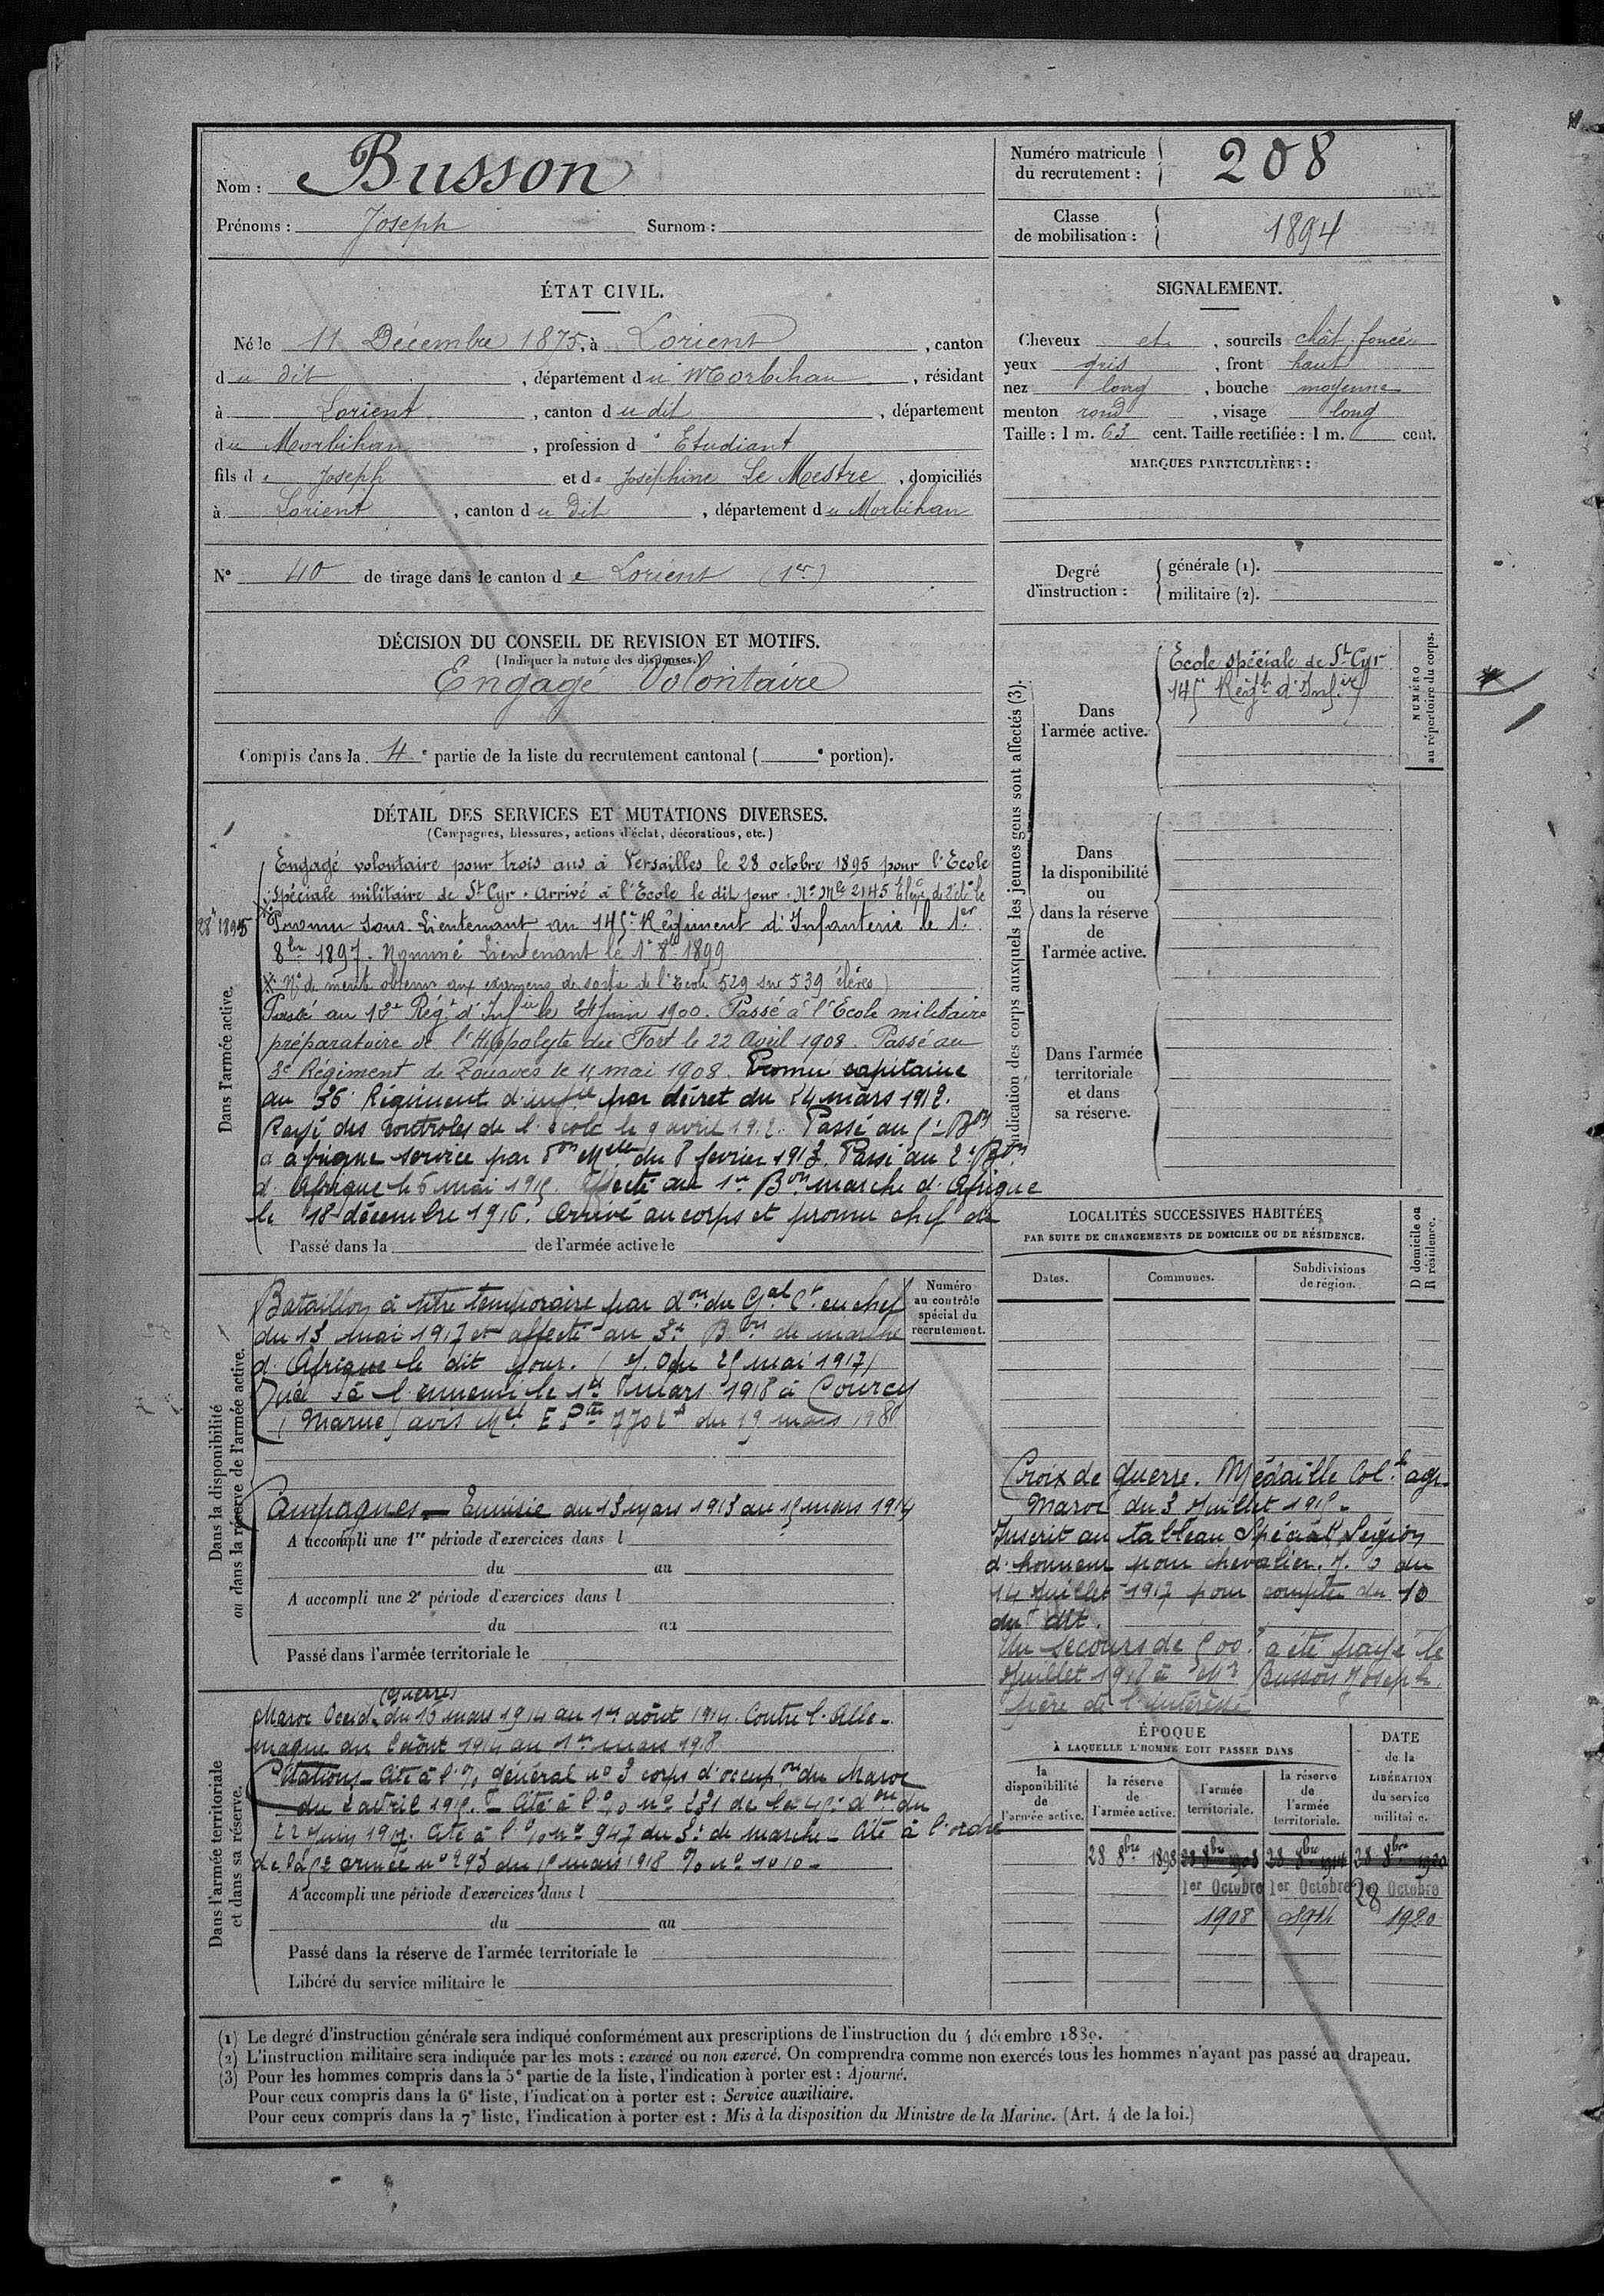 Nom : Busson
Prénoms : Joseph Surnom :
Numéro matricule
du recrutement : 208
Classe
de mobilisation : 1894
ÉTAT CIVIL.
Né le 11 Décembre 1875, à Lorient, canton
du dit, département du Morbihan, résidant
à Lorient, canton du dit, département
du Morbihan, profession d' Etudiant
fils de Joseph et de Joséphine Le Mestre, domiciliés
à Lorient, canton du dit, département du Morbihan
N° 40 de tirage dans le canton de Lorient (1er)
SIGNALEMENT.
Cheveux et, sourcils chât. foncés
yeux gris, front haut
nez long, bouche moyenne
menton rond, visage long
Taille : 1 m. 63 cent. Taille rectifiée : 1 m. cent.
MARQUES PARTICULIÈRES :
Degré
d'instruction :
générale (1).
militaire (2).
DÉCISION DU CONSEIL DE REVISION ET MOTIFS.
(Indiquer la nature des dispenses.)
Engagé Volontaire
Compris dans la 4e partie de la liste du recrutement cantonal ( e portion).
Indication des corps auxquels les jeunes gens sont affectés (3).
Dans
l'armée active.
Ecole spéciale de St Cyr
145e Régt d'Infie
NUMÉRO
au répertoire du corps.
Dans
la disponibilité
ou
dans la réserve
de
l'armée active.
Dans l'armée
territoriale
et dans
sa réserve.
DÉTAIL DES SERVICES ET MUTATIONS DIVERSES.
(Campagnes, blessures, actions d'éclat, décorations, etc.)
Dans l'armée active.
Engagé volontaire pour trois ans à Versailles le 28 octobre 1895 pour l'Ecole
spéciale militaire de St Cyr. Arrivé à l'Ecole le dit jour. No Mle 2145 Elève de le
28 1895
Promu Sous-Lieutenant au 145e Régiment d'Infanterie le 1er
8bre 1897. Nommé Lieutenant le 1er 8bre 1899
(No de mérite obtenu aux examens de sortie de l'Ecole 529 sur 539 élèves)
Passé au 12e Régt d'Infie le 24 Juin 1900. Passé à l'Ecole militaire
préparatoire de l'Hippolyte du Fort le 22 Avril 1908. Passé au
Régiment de Zouaves le 4 mai 1908. Promu capitaine
au 36e Régiment d'infie par décret du 24 mars 1912.
Rayé des controles de l'école le 9 avril 1912. Passé au Bon
d'afrique service par Don Mlle du 8 fevrier 1913. Passé au 2e Bon
d'Afrique le 6 mai 1915. Affecté au 1er Bon marche d'Afrique
le 18 décembre 1916. Arrivé au corps et promu chef de
Passé dans la de l'armée active le
Dans la disponibilité
ou dans la réserve de l'armée active.
Numéro
au contrôle
spécial du
recrutement.
Bataillon à titre temporaire par don du Gal Ct en chef
du 13 mai 1917 et affecté au 3e Bon de marche
d'Afrique le dit jour. (J. O du 25 mai 1917)
Tué à l'ennemi le 1er mars 1918 à Courcy
(Marne) avis Mel du 19 mars 1918
Campagnes - Tunisie du 13 mars 1913 au 15 mars 1914
A accompli une 1re période d'exercices dans l
du au
A accompli une 2e période d'exercices dans l
du au
Passé dans l'armée territoriale le
LOCALITÉS SUCCESSIVES HABITÉES
PAR SUITE DE CHANGEMENTS DE DOMICILE OU DE RÉSIDENCE.
Dates. Communes. Subdivisions
de région.
D domicile ou
R résidence.
Croix de guerre. Médaille Colle agr.
Maroc du 3 Juillet 191
Inscrit au tableau Spécial Légion
d'honneur pour chevalier. J. O du
14 Juillet 1917 pour compter du 10
du dit.
Un secours de 500f a été payé le
Juillet 1918 à Mr Busson Joseph
père de l'intéressé
Dans l'armée territoriale
et dans sa réserve.
(guerre)
Maroc Occid. du 16 mars 1914 au 1er août 1914. Contre l'Alle-
magne du 2 août 1914 au 1er mars 1918
Citations - Cité à l'o/ général no 3 corps d'occupon du Maroc
du 2 avril 1915. - Cité à l'o/ no 221 de la don du
22 Juin 1917. Cité à l'o/ no 947 du 3e de marche - Cité à l'ordre
de la 5e armée no 293 du mars 1918 o/ no 1010 -
A accompli une période d'exercices dans l
du au
Passé dans la réserve de l'armée territoriale le
Libéré du service militaire le
ÉPOQUE
À LAQUELLE L'HOMME DOIT PASSER DANS
la
disponibilité
de
l'armée active.
la réserve
de
l'armée active.
l'armée
territoriale.
la réserve
de
l'armée
territoriale.
DATE
de la
LIBÉRATION
du service
militaire.
28 8bre 1898 28 8bre 1908 28 8bre 1914 28 8bre 1920
1er Octobre 1er Octobre 28 Octobre
1908 1914 1920
(1) Le degré d'instruction générale sera indiqué conformément aux prescriptions de l'instruction du 4 décembre 1889.
(2) L'instruction militaire sera indiquée par les mots : exercé ou non exercé. On comprendra comme non exercés tous les hommes n'ayant pas passé au drapeau.
(3) Pour les hommes compris dans la 5e partie de la liste, l'indication à porter est : Ajourné.
Pour ceux compris dans la 6e liste, l'indication à porter est : Service auxiliaire.
Pour ceux compris dans la 7e liste, l'indication à porter est : Mis à la disposition du Ministre de la Marine. (Art. 4 de la loi.)